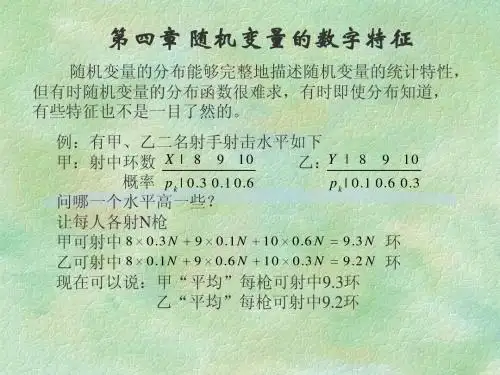 第四章 随机变量的数字特征
随机变量的分布能够完整地描述随机变量的统计特性，
但有时随机变量的分布函数很难求，有时即使分布知道，
有些特征也不是一目了然的。
例：有甲、乙二名射手射击水平如下
甲：射中环数 X | 8 9 10 乙：Y | 8 9 10
概率 pₖ | 0.3 0.1 0.6 pₖ | 0.1 0.6 0.3
问哪一个水平高一些？
让每人各射N枪
甲可射中 8×0.3N + 9×0.1N + 10×0.6N = 9.3N 环
乙可射中 8×0.1N + 9×0.6N + 10×0.3N = 9.2N 环
现在可以说：甲“平均”每枪可射中9.3环
乙“平均”每枪可射中9.2环